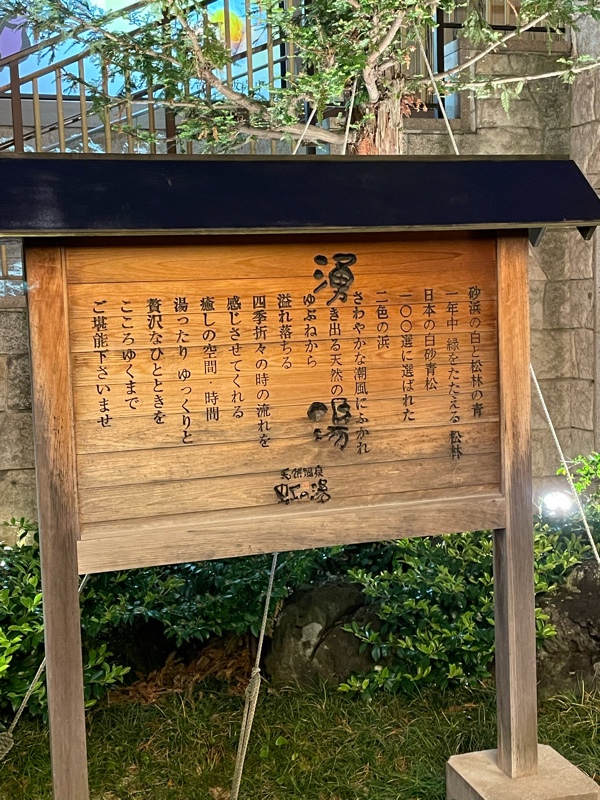 砂浜の白と松林の青
一年中 緑をたたえる 松林
日本の白砂青松
一〇〇選に選ばれた
二色の浜
さわやかな潮風にふかれ
湧き出る天然の湯
ゆぶねから
溢れ落ちる
四季折々の時の流れを
感じさせてくれる
癒しの空間・時間
湯ったり ゆっくりと
贅沢なひとときを
こころゆくまで
ご堪能下さいませ
天然温泉
虹の湯